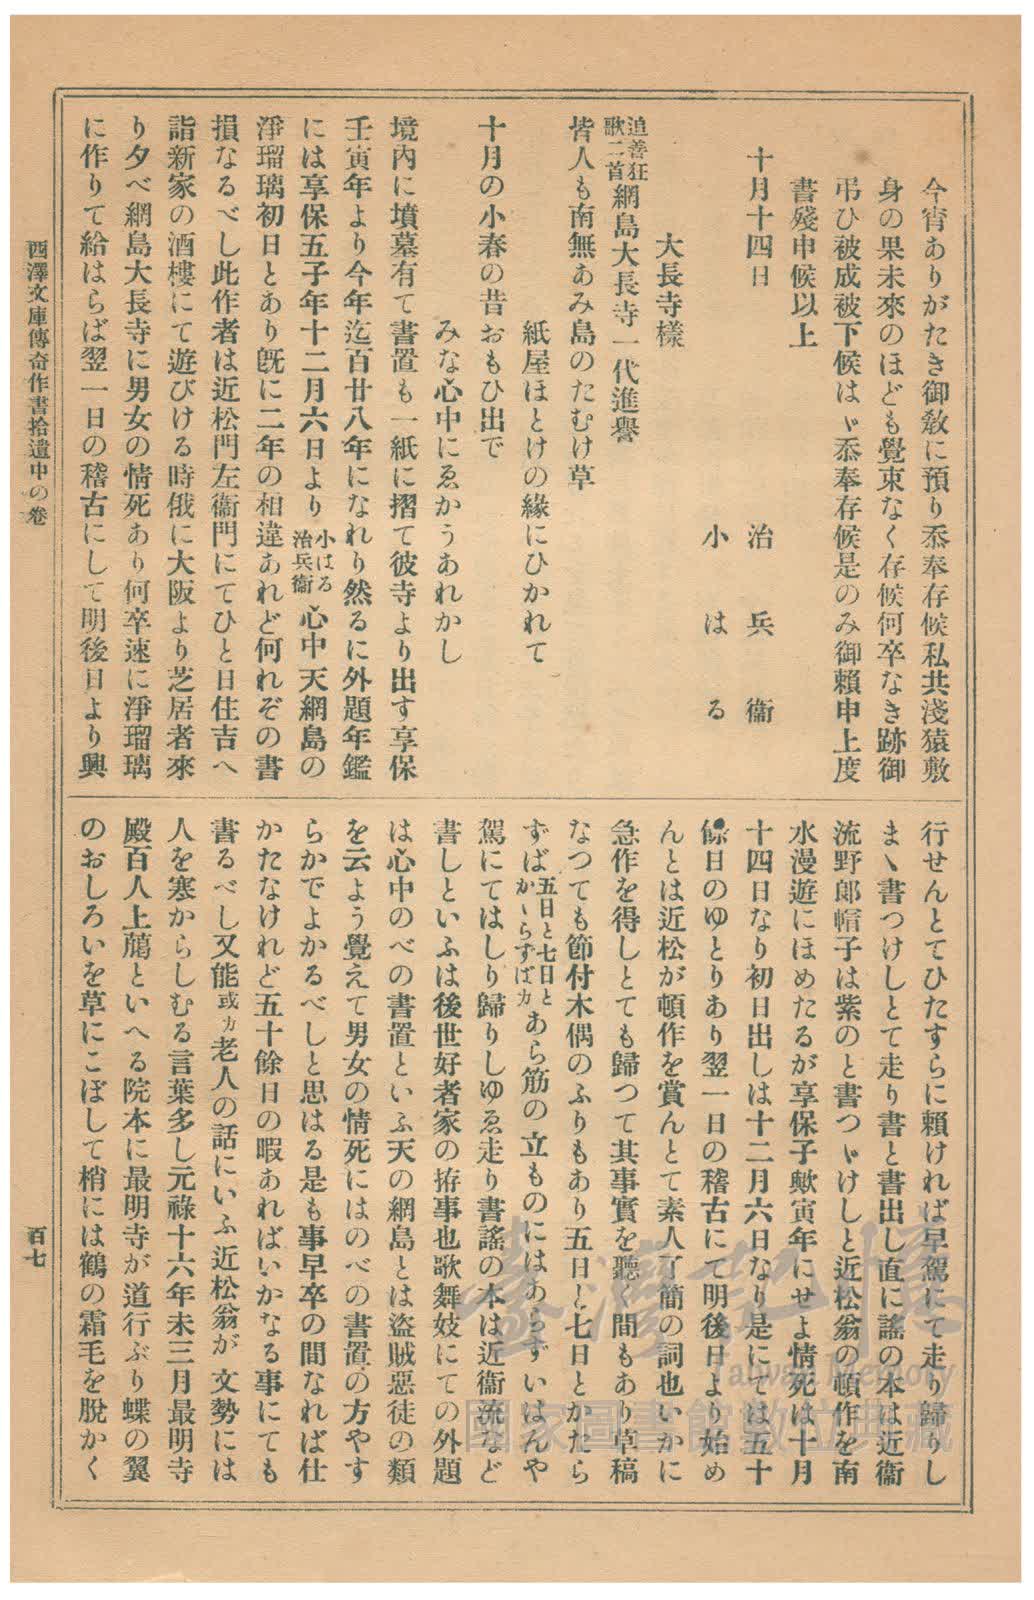 今宵ありがたき御敎に預り忝奉存候私共淺猿敷
身の果未來のほども覺束なく存候何卒なき跡御
弔ひ被成被下候はゞ忝奉存候是のみ御賴申上度
書殘申候以上
十月十四日　治兵衞
小はる
大長寺樣
追善狂歌二首網島大長寺一代進譽
皆人も南無あみ島のたむけ草
紙屋ほとけの緣にひかれて
十月の小春の昔おもひ出で
みな心中にゑかうあれかし
境內に墳墓有て書置も一紙に摺て彼寺より出す享保
壬寅年より今年迄百廿八年になれり然るに外題年鑑
には享保五子年十二月六日より小はる治兵衞心中天網島の
淨瑠璃初日とあり旣に二年の相違あれど何れぞの書
損なるべし此作者は近松門左衞門にてひと日住吉へ
詣新家の酒樓にて遊びける時俄に大阪より芝居者來
り夕べ網島大長寺に男女の情死あり何卒速に淨瑠璃
に作りて給はらば翌一日の稽古にして明後日より興
行せんとてひたすらに賴ければ早駕にて走り歸りし
まゝ書つけしとて走り書と書出し直に謠の本は近衞
流野郞帽子は紫のと書つゞけしと近松翁の頓作を南
水漫遊にほめたるが享保子歟寅年にせよ情死は十月
十四日なり初日出しは十二月六日なり是にては五十
餘日のゆとりあり翌一日の稽古にて明後日より始め
んとは近松が頓作を賞んとて素人了簡の詞也いかに
急作を得しとても歸つて其事實を聽く間もあり草稿
なつても節付木偶のふりもあり五日と七日とかたら
ずば五日と七日とかゝらずばカあら筋の立ものにはあらずいはんや
駕にてはしり歸りしゆゑ走り書謠の本は近衞流など
書しといふは後世好者家の拵事也歌舞妓にての外題
は心中のべの書置といふ天の網島とは盜賊惡徒の類
を云よう覺えて男女の情死にはのべの書置の方やす
らかでよかるべしと思はる是も事早卒の間なれば仕
かたなけれど五十餘日の暇あればいかなる事にても
書るべし又能或カ老人の話にいふ近松翁が文勢には
人を寒からしむる言葉多し元祿十六年未三月最明寺
殿百人上﨟といへる院本に最明寺が道行ぶり蝶の翼
のおしろいを草にこぼして梢には鶴の霜毛を脫かく
西澤文庫傳奇作書拾遺中の卷
百七
臺灣記憶
Taiwan Memory
國家圖書館數位典藏